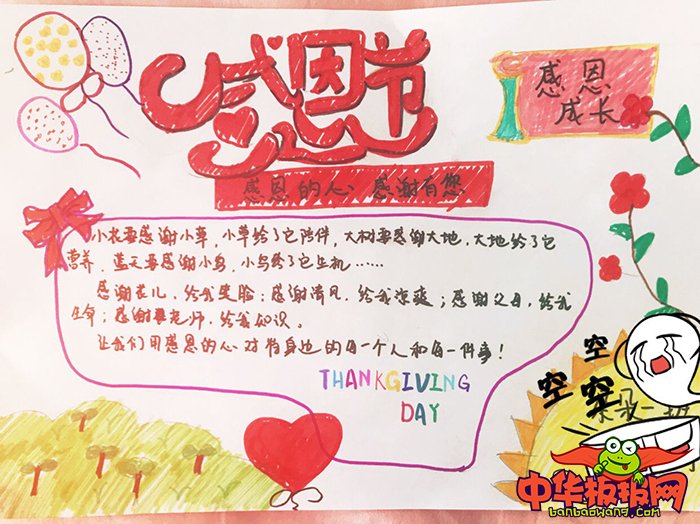 感恩节
感恩
成长
感恩的心 感谢有您
小花要感谢小草,小草给了它陪伴,大树要感谢大地,大地给了它
营养,蓝天要感谢小鸟,小鸟给了它生机……
感谢花儿,给我笑脸;感谢清风,给我凉爽;感谢父母,给我
生命;感谢老师,给我知识。
让我们用感恩的心对待身边的每一个人和每一件事!
THANKGIVING
DAY
空
空
空
中华板报网
banbaowang.com